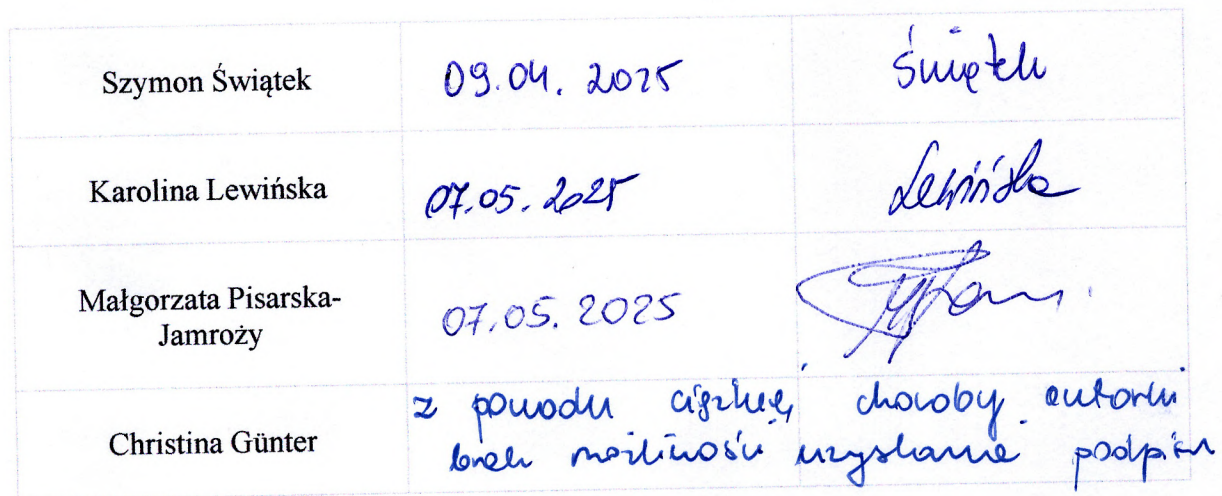 Szymon Świątek 09.04.2025 Świątek
Karolina Lewińska 07.05.2025 Lewińska
Małgorzata Pisarska-
Jamroży 07.05.2025
Christina Günter z powodu ciężkiej choroby autorki
brak możliwości uzyskania podpisu